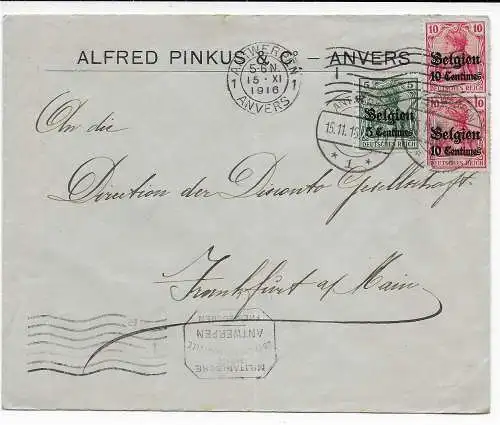 ALFRED PINKUS & Cº. - ANVERS
ANTWERPEN
5-6 N
1 15-XI 1
1916
ANVERS
10 10
Belgien
10 Centimes
DEUTSCHES REICH
5 5
Belgien
5 Centimes
DEUTSCHES REICH
10
Belgien
10 Centimes
DEUTSCHES REICH
15.11.
* 1 *
An die
Direction der Disconto Gesellschaft
Frankfurt a/ Main
MILITÄRISCHE
ANTWERPEN